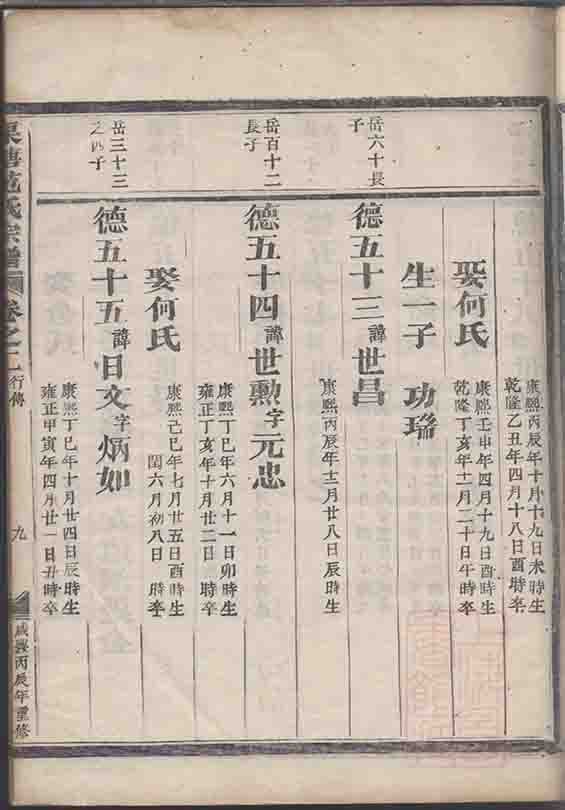 康熙丙辰年十月十九日未時生
乾隆乙丑年四月十八日酉時卒
娶何氏
康熙壬申年四月十九日酉時生
乾隆丁亥年十一月二十日午時卒
生一子 功瑞
岳六十長
子
德五十三諱世昌
康熙丙辰年十二月廿八日辰時生
岳百十二
長子
德五十四諱世勲字元忠
康熙丁巳年六月十一日卯時生
雍正丁亥年十月廿二日 時卒
娶何氏
康熙己巳年七月廿五日酉時生
閏六月初八日 時卒
岳三十三
之四子
德五十五諱日文字炳如
康熙丁巳年十月廿四日辰時生
雍正甲寅年四月廿一日丑時卒
氏宗譜 卷之二 行傳 九 咸豐丙辰年重修